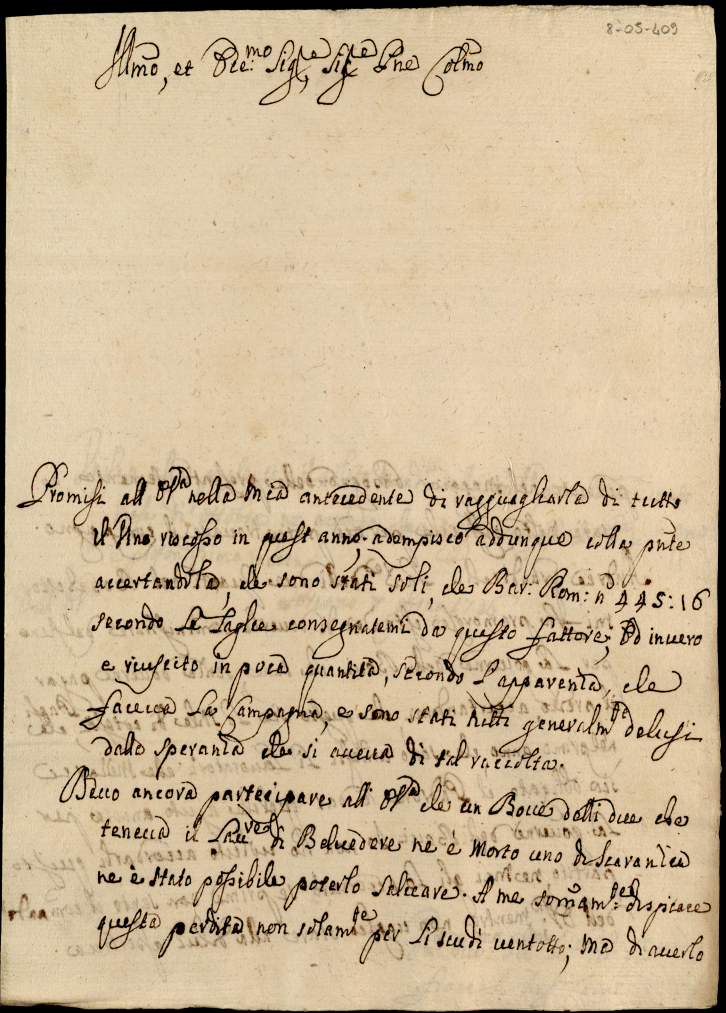 8-05-409
Illmo, et Pre:mo Sigre, Sigre Pne Colmo
Promisi all VSa nella mia antecedente di ragguagliarla di tutto
il vino riscosso in quest anno, adempisco addunque colla pnte
accertandola, che sono stati soli, che Bar: Rom: nº 445:16
secondo Le Taglie consegnatemi da questo fattore; Ed invero
e riuscito in poca quantità, secondo L'apparenza, che
faceva La Campagna, e sono stati tutti generalmte delusi
dalla speranza che si aveva di tal raccolta.
Devo ancora partecipare all' VSa che un Bove delli due che
teneva il Lavre di Belvedere ne è Morto uno di Scarantia
ne è stato possibile poterlo salvare. A me sommamte dispiace
questa perdita non solamte per Li scudi ventotto; ma di averlo